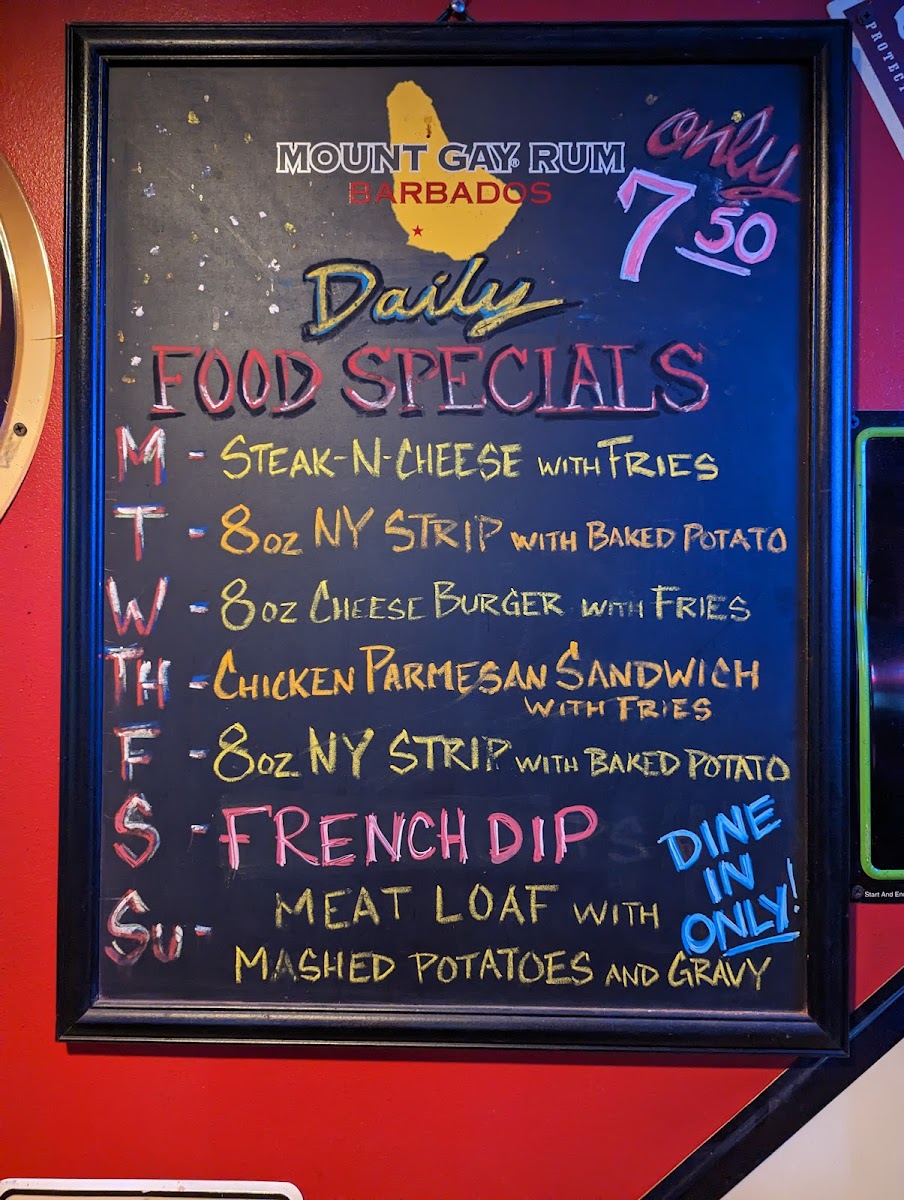 PROTECT
MOUNT GAY® RUM
BARBADOS
only
7 50
Daily
FOOD SPECIALS
M - STEAK-N-CHEESE WITH FRIES
T - 8oz NY STRIP WITH BAKED POTATO
W - 8oz CHEESE BURGER WITH FRIES
TH - CHICKEN PARMESAN SANDWICH
WITH FRIES
F - 8oz NY STRIP WITH BAKED POTATO
S - FRENCH DIP
DINE
IN
ONLY!
Su - MEAT LOAF WITH
MASHED POTATOES AND GRAVY
Start And